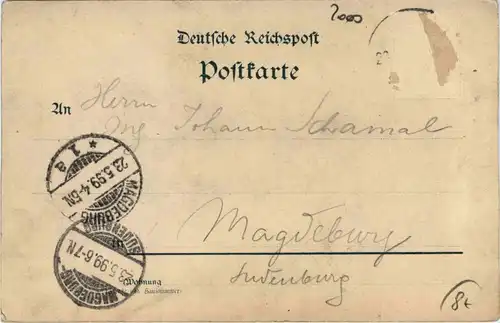 2000
Deutsche Reichspost
Postkarte
An Herrn
Johann Schamal
MAGDEBURG
* 1a
23.5.99.4-5N.
Magdeburg
in
Sudenburg
MAGDEBURG-SUDENBURG
23.5.99.6-7N
Wohnung
84